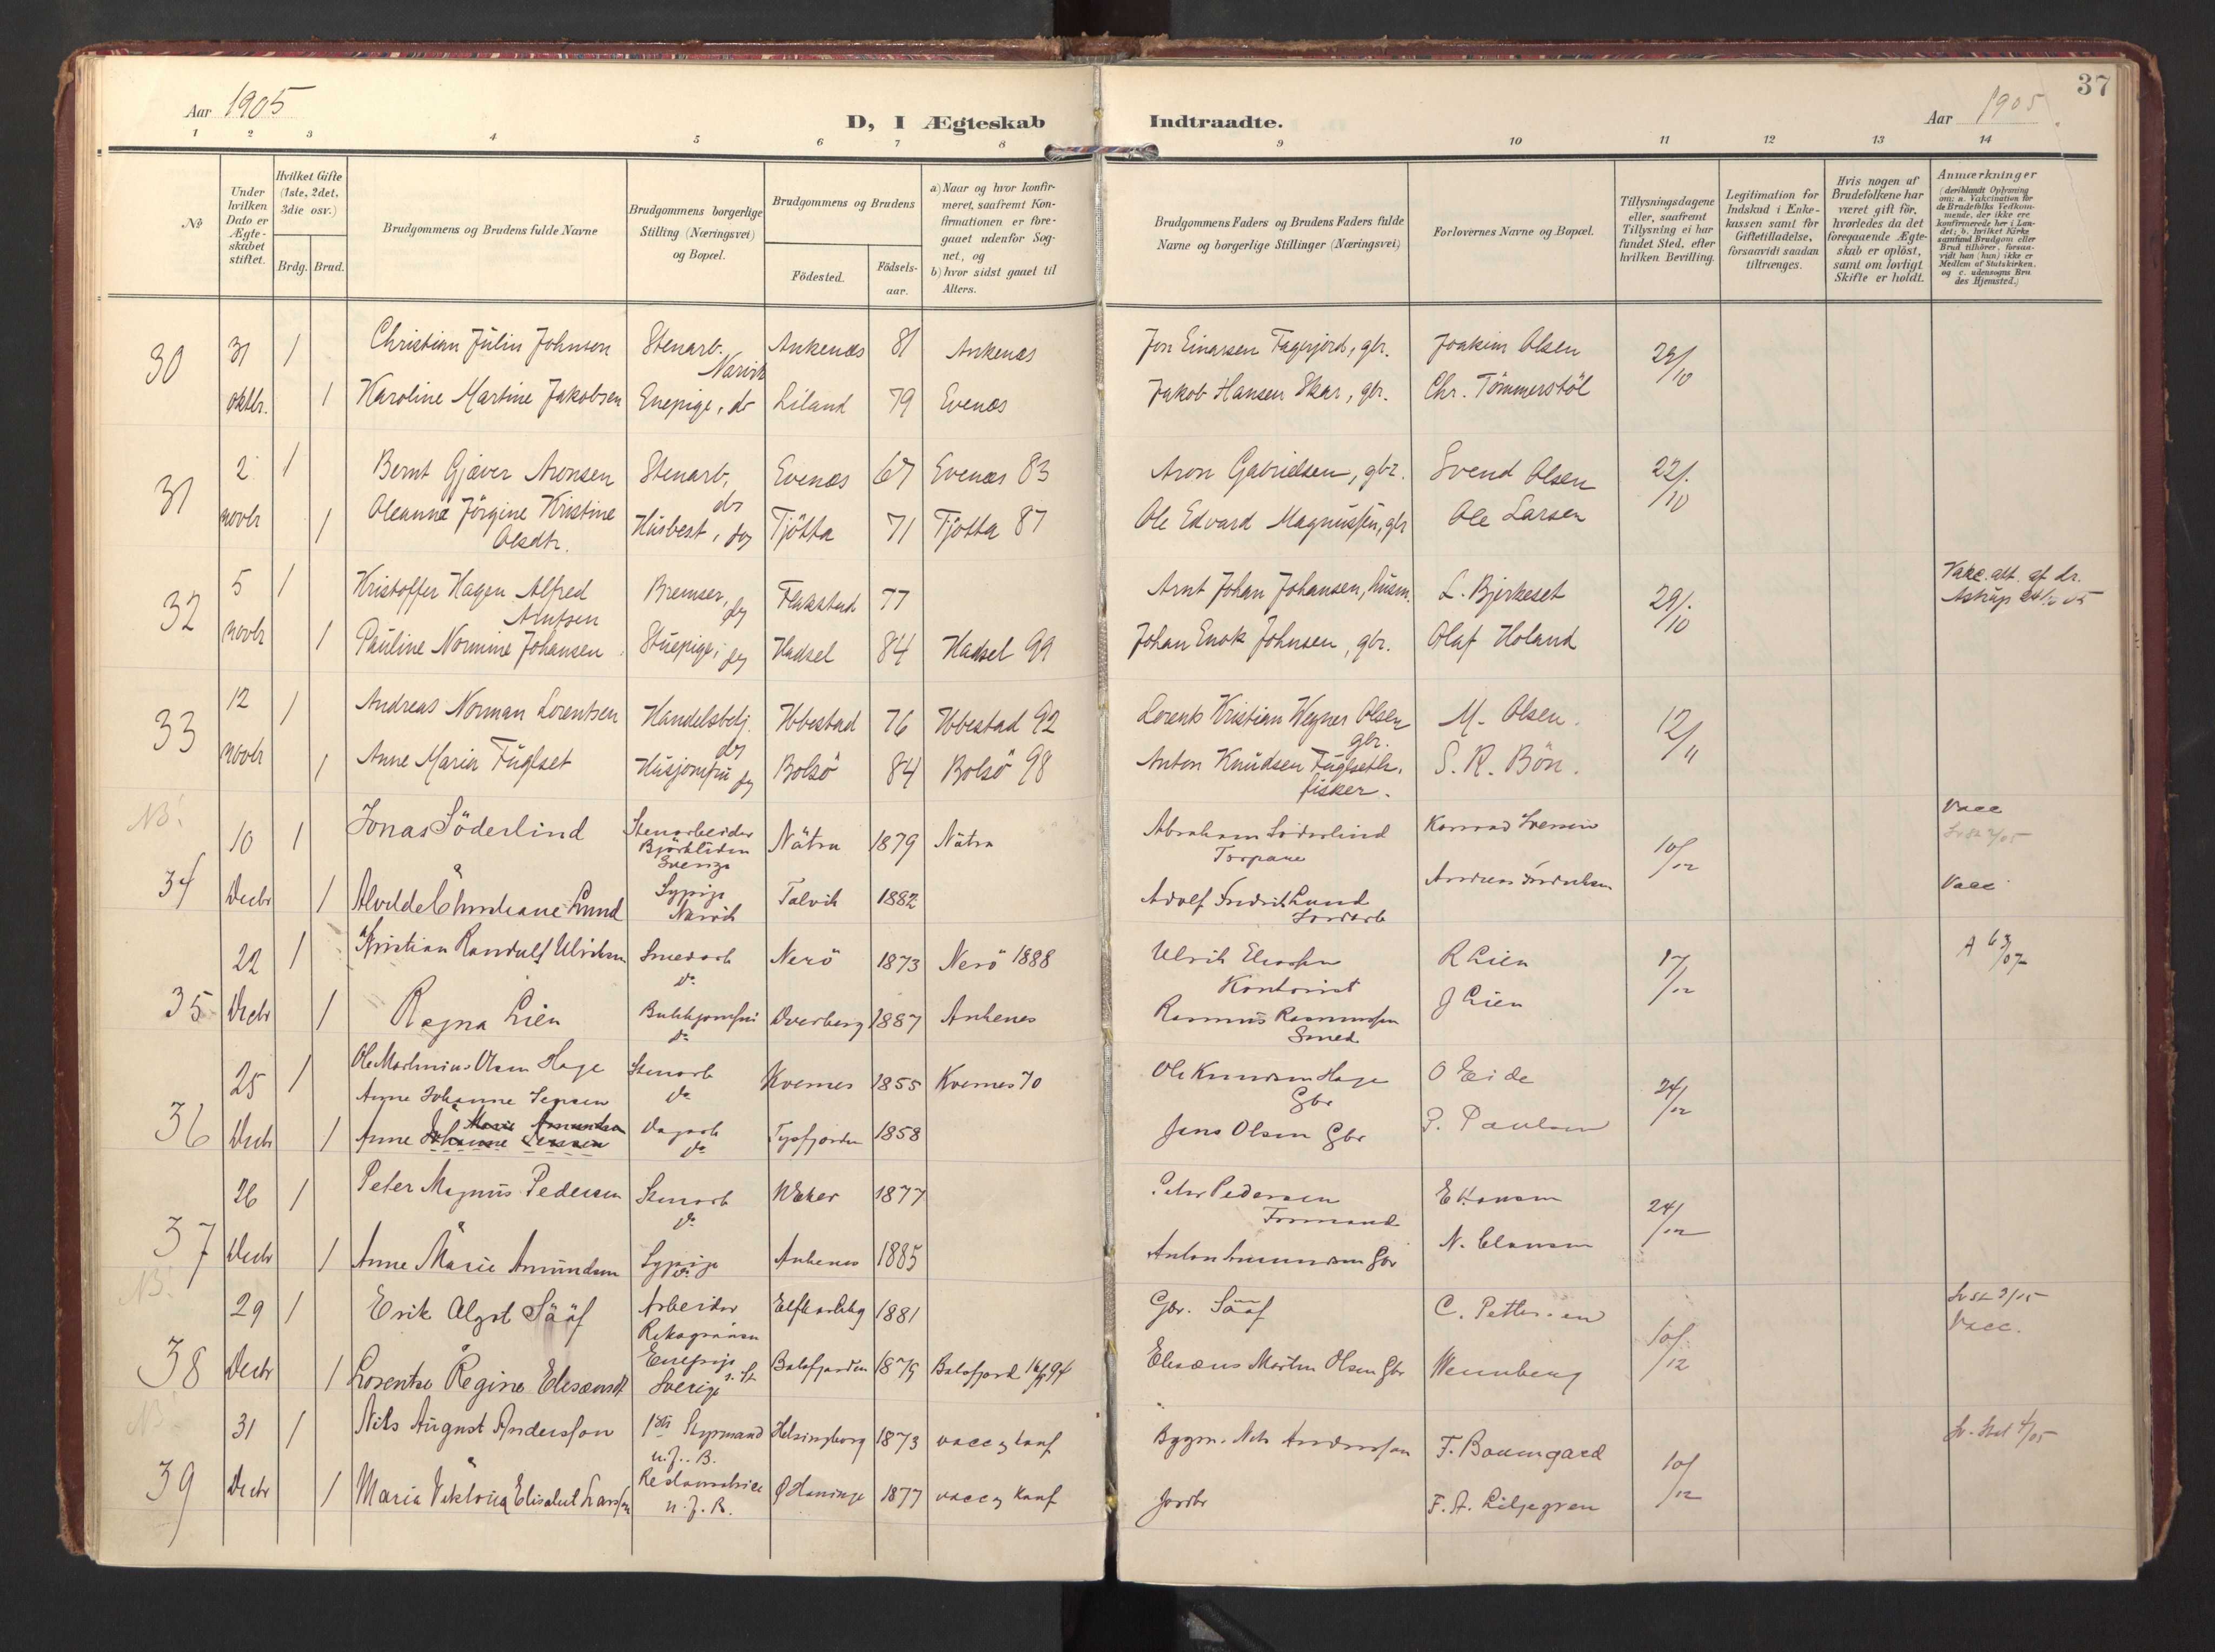 37
Aar 1905
D, I Ægteskab Indtraadte.
Aar 1905
1 2 3 4 5 6 7 8 9 10 11 12 13 14
No
Under hvilken Dato er Ægteskabet stiftet.
Hvilket Gifte (1ste, 2det, 3die osv.)
Brdg. Brud.
Brudgommens og Brudens fulde Navne
Brudgommens borgerlige Stilling (Næringsvei) og Bopæl.
Brudgommens og Brudens
Födested.
Födsels-aar.
a) Naar og hvor konfir-
meret, saafremt Kon-
firmationen er fore-
gaaet udenfor Sog-
net, og
b) hvor sidst gaaet til
Alters.
Brudgommens Faders og Brudens Faders fulde
Navne og borgerlige Stillinger (Næringsvei)
Forlovernes Navne og Bopæl.
Tillysningsdagene
eller, saafremt
Tillysning ei har
fundet Sted, efter
hvilken Bevilling.
Legitimation for
Indskud i Enke-
kassen samt for
Giftetilladelse,
forsaavidt saadan
tiltrænges.
Hvis nogen af
Brudefolkene har
været gift för,
hvorledes da det
foregaaende Ægte-
skab er oplöst,
samt om lovligt
Skifte er holdt.
Anmærkninger
(deriblandt Oplysning
om: a. Vakcination for
de Brudefolks Vedkom-
mende, der ikke ere
konfirmerede her i Lan-
det; b. hvilket Kirke-
samfund Brudgom eller
Brud tilhörer, forsaa-
vidt han (hun) ikke er
Medlem af Statskirken,
og c. udensogns Bru-
des Hjemsted.)
30 31 1 Christian Julin Johnsen Stenarb. Narvik Ankenæs 81 Ankenæs Jon Einarsen Fagerjord, gbr. Joakim Olsen 29/10
oktbr. 1 Karoline Martine Jakobsen Enepige, do Liland 79 Evenæs Jakob Hansen Skar, gbr. Chr. Tömmerstöl
31 2 1 Bernt Gjæver Aronsen Stenarb, do Evenæs 67 Evenæs 83 Aron Gabrielsen, gbr. Svend Olsen 22/10
novbr 1 Oleanna Jörgine Kristine Olsdtr. Husbest, do Tjötta 71 Tjötta 87 Ole Edvard Magnussen, gbr Ole Larsen
32 5 1 Kristoffer Hagen Alfred Arntsen Bremser, do Flakstad 77 Arnt Johan Johansen, husm. L. Bjerkeset 29/10 Vakc. att. af dr. Astrup
novbr 1 Pauline Normine Johansen Stuepige, do Hadsel 84 Hadsel 99 Johan Enok Johnsen, gbr. Olaf Holand
33 12 1 Andreas Norman Lorentsen Handelsbetj. do Ibbestad 76 Ibbestad 92 Lorents Kristian Wegner Olsen gbr. M. Olsen. 12/11
novbr 1 Anne Marie Fuglset Husjomfru do Bolsö 84 Bolsö 98 Anton Knudsen Fuglseth, fisker. S. R. Bön.
NB!
34 10 1 Jonas Söderlind Stenarbeider Björkliden Sverige Nätra 1879 Nätra Abraham Söderlind Torpare Konrad 10/12 Vacc
Decbr 1 Alvilde Lund Sypige Narvik Talvik 1882 Adolf Fredrik Lund Jordarb Andreas Vacc
35 22 1 Kristian Randulf Ulriksen Smedarb do Nerö 1873 Nerö 1888 Ulrik Kontorist R Lien 17/12
Decbr 1 Ragna Lien do Overberg 1887 Ankenes Rasmus Rasmussen Smed. J Lien
36 25 1 Ole Martinius Olsen Hage Stenarb do Kvernes 1855 Kvernes 70 Ole Knudsen Hage Gbr O Eide 24/12
Anne Johanne Jensen
Decbr 1 Anne Johanne Jensen Marie Amundsen Dagarb do Tysfjorden 1858 Jens Olsen Gbr P. Paulsen
37 26 1 Peter Magnus Pedersen Stenarb do 1877 Peter Pedersen Formand E Hansen 24/12
Decbr 1 Anne Marie Amundsen Sypige do Ankenes 1885 Anton Amundsen Gbr N. Clausen
NB!
38 29 1 Erik Algot Sääf Arbeider Riksgränsen Elfkarleby 1881 Gbr. Sääf C. Pettersen 10/12 Vacc.
Decbr 1 Lorentze Regine Elesænsdt Enepige Sverige Balsfjorden 1879 Balsfjord Elesæus Martin Olsen Gbr Wennberg
39 31 1 Nils August Andersson 1ste Styrmand Helsingborg 1873 vacc og konf Bygm. Nils Andersson F. Baumgard 10/12
Decbr 1 Maria Viktoria Elisabet Larsson Ö Haninge 1877 vacc og konf Jordbr F. A. Liljegren